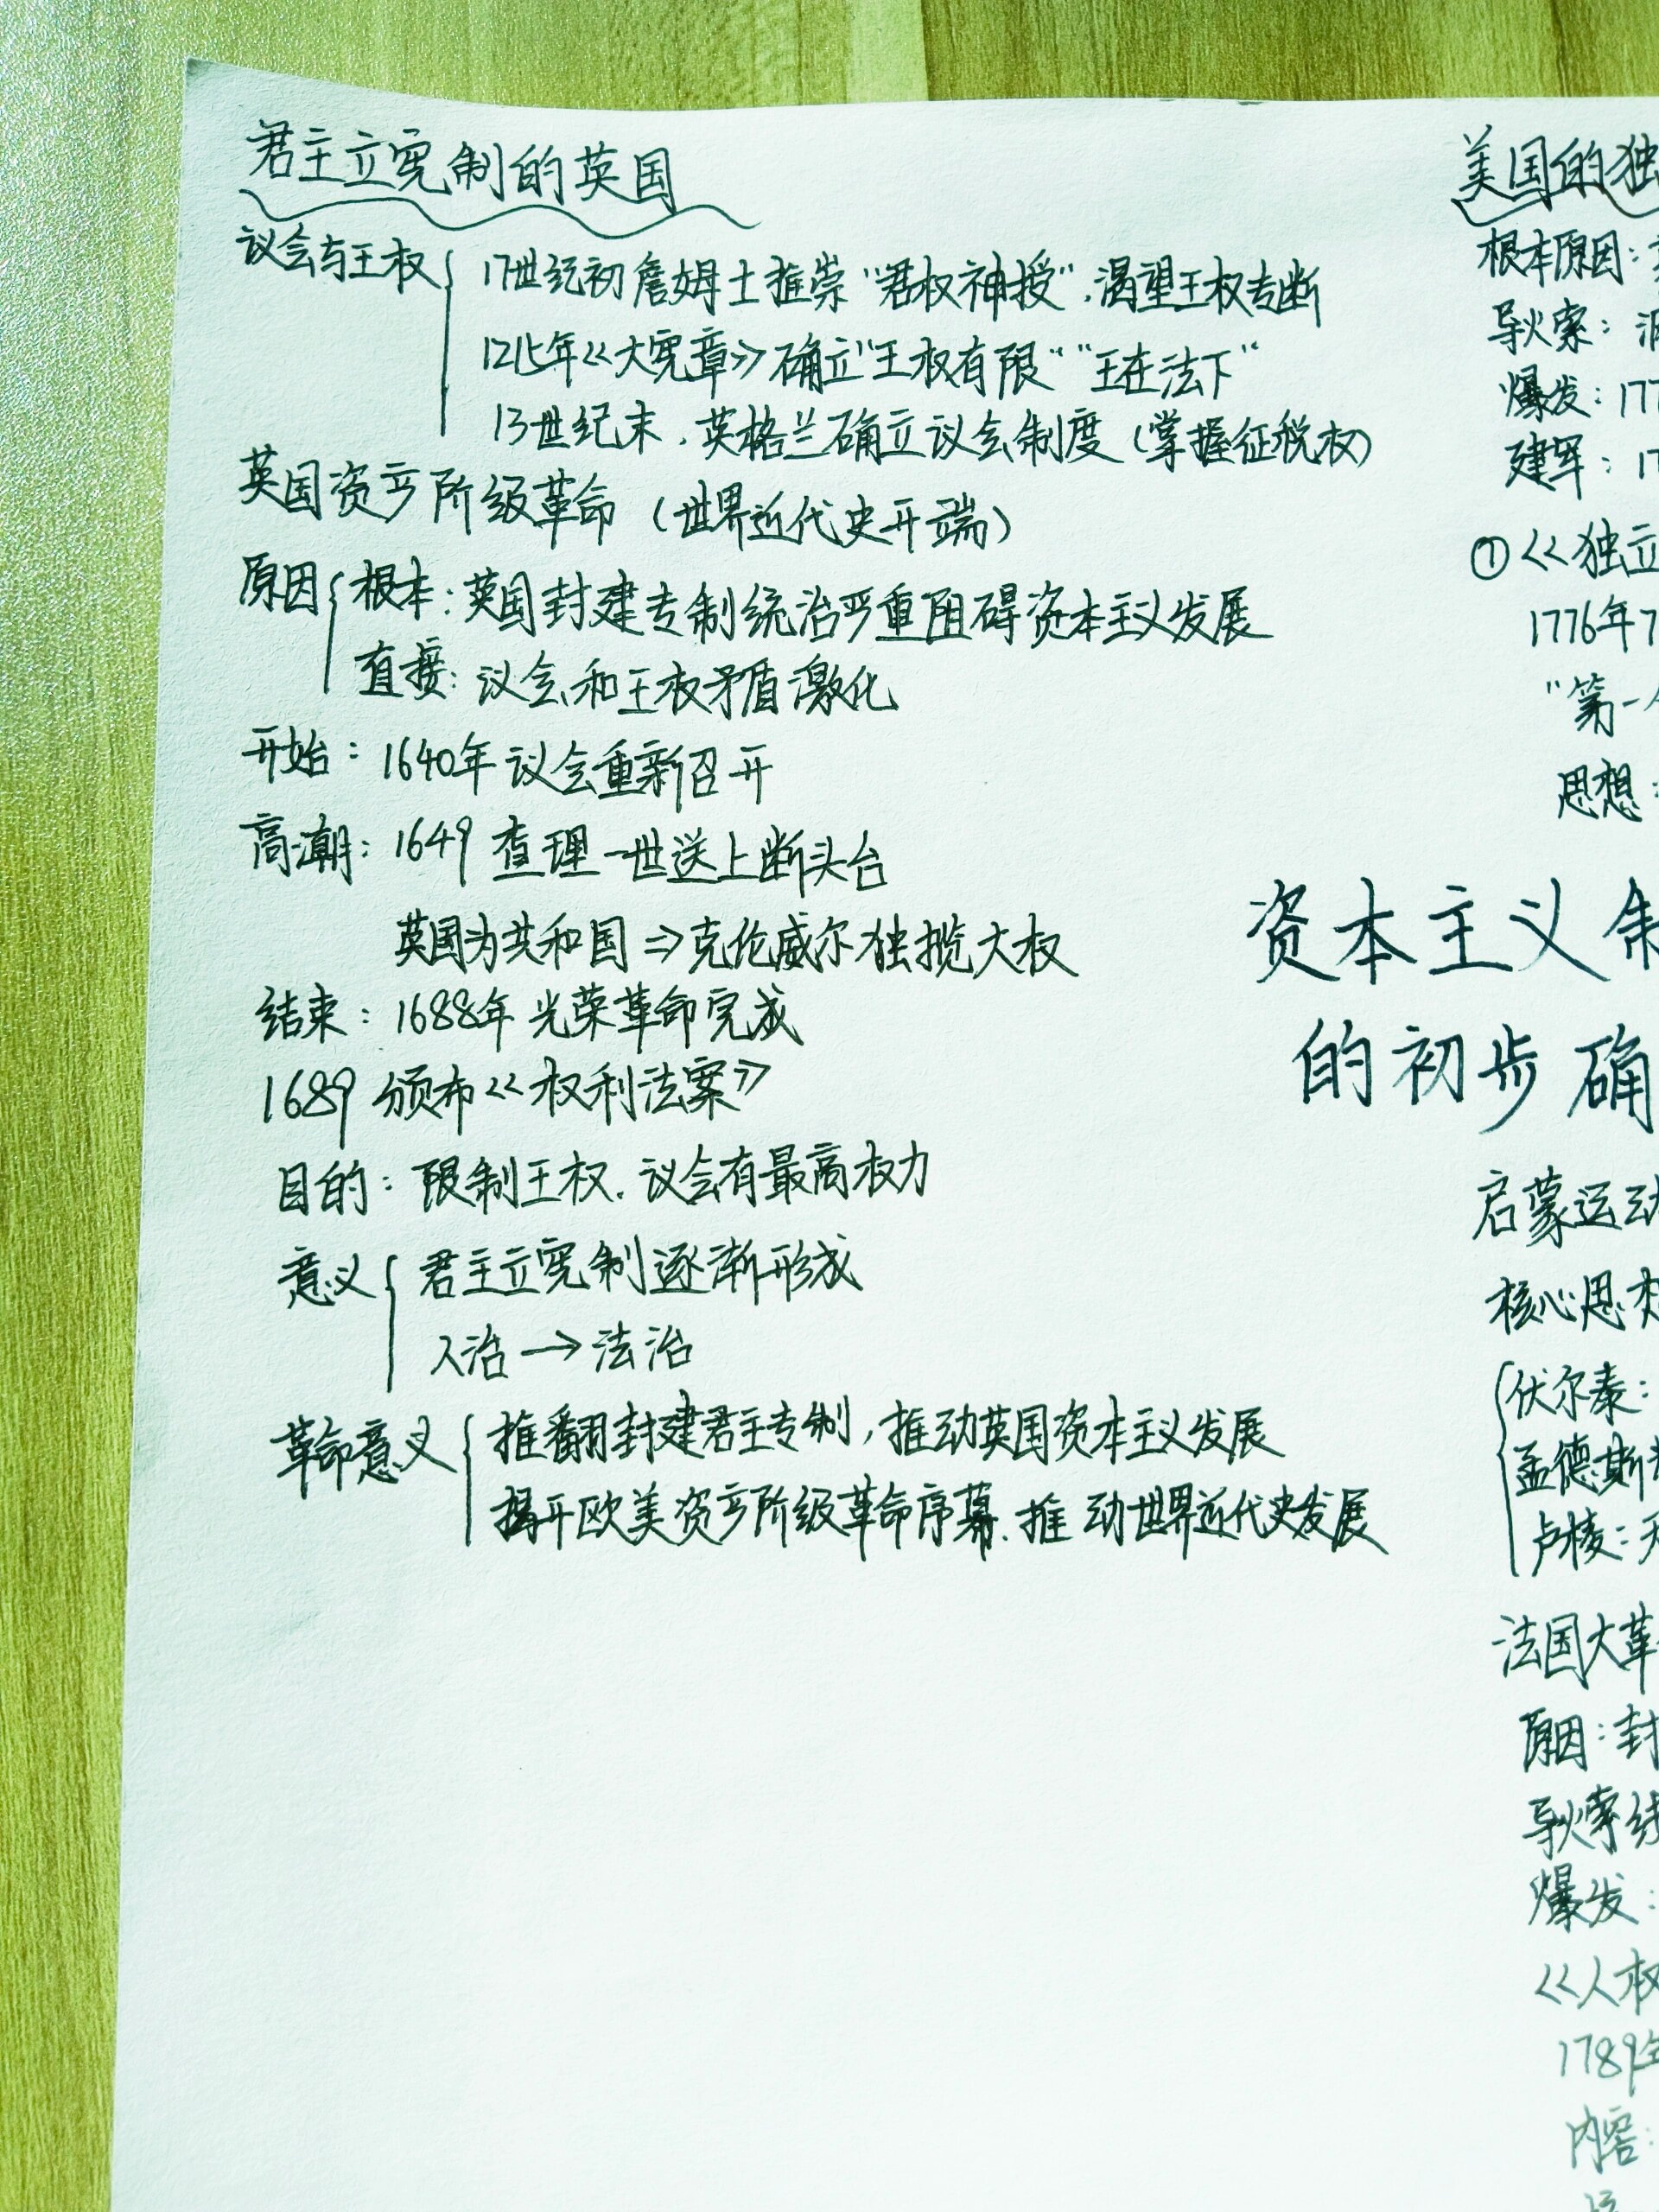 君主立宪制的英国
议会与王权
17世纪初詹姆士推崇"君权神授",渴望王权专断
1215年<<大宪章>>确立"王权有限""王在法下"
13世纪末,英格兰确立议会制度(掌握征税权)
英国资产阶级革命(世界近代史开端)
原因
根本:英国封建专制统治严重阻碍资本主义发展
直接:议会和王权矛盾激化
开始:1640年议会重新召开
高潮:1649 查理一世送上断头台
英国为共和国⇒克伦威尔独揽大权
结束:1688年光荣革命完成
1689 颁布<<权利法案>>
目的:限制王权.议会有最高权力
意义
君主立宪制逐渐形成
人治→法治
革命意义
推翻封建君主专制,推动英国资本主义发展
揭开欧美资产阶级革命序幕.推动世界近代史发展
美国的独
根本原因:
导火索:
爆发:177
建军:17
①<<独立
1776年7
"第一
思想:
资本主义制
的初步确
启蒙运动
核心思想
伏尔泰:
孟德斯
卢梭:天
法国大革
原因:封
导火索
爆发:
<<人权
1789年
内容: